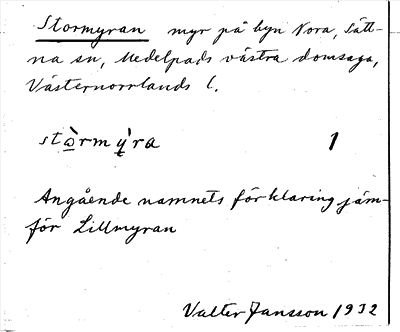 Stormyran myr på byn Nora, Sätt-
na sn, Medelpads västra domsaga,
Västernorrlands l.
stɔ̀rmỳ̨ra 1
Angående namnets förklaring jäm-
för Lillmyran
Valter Jansson 1932